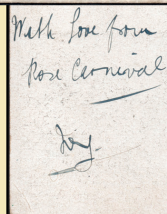 With Love from
Rose Carnival
Joy.